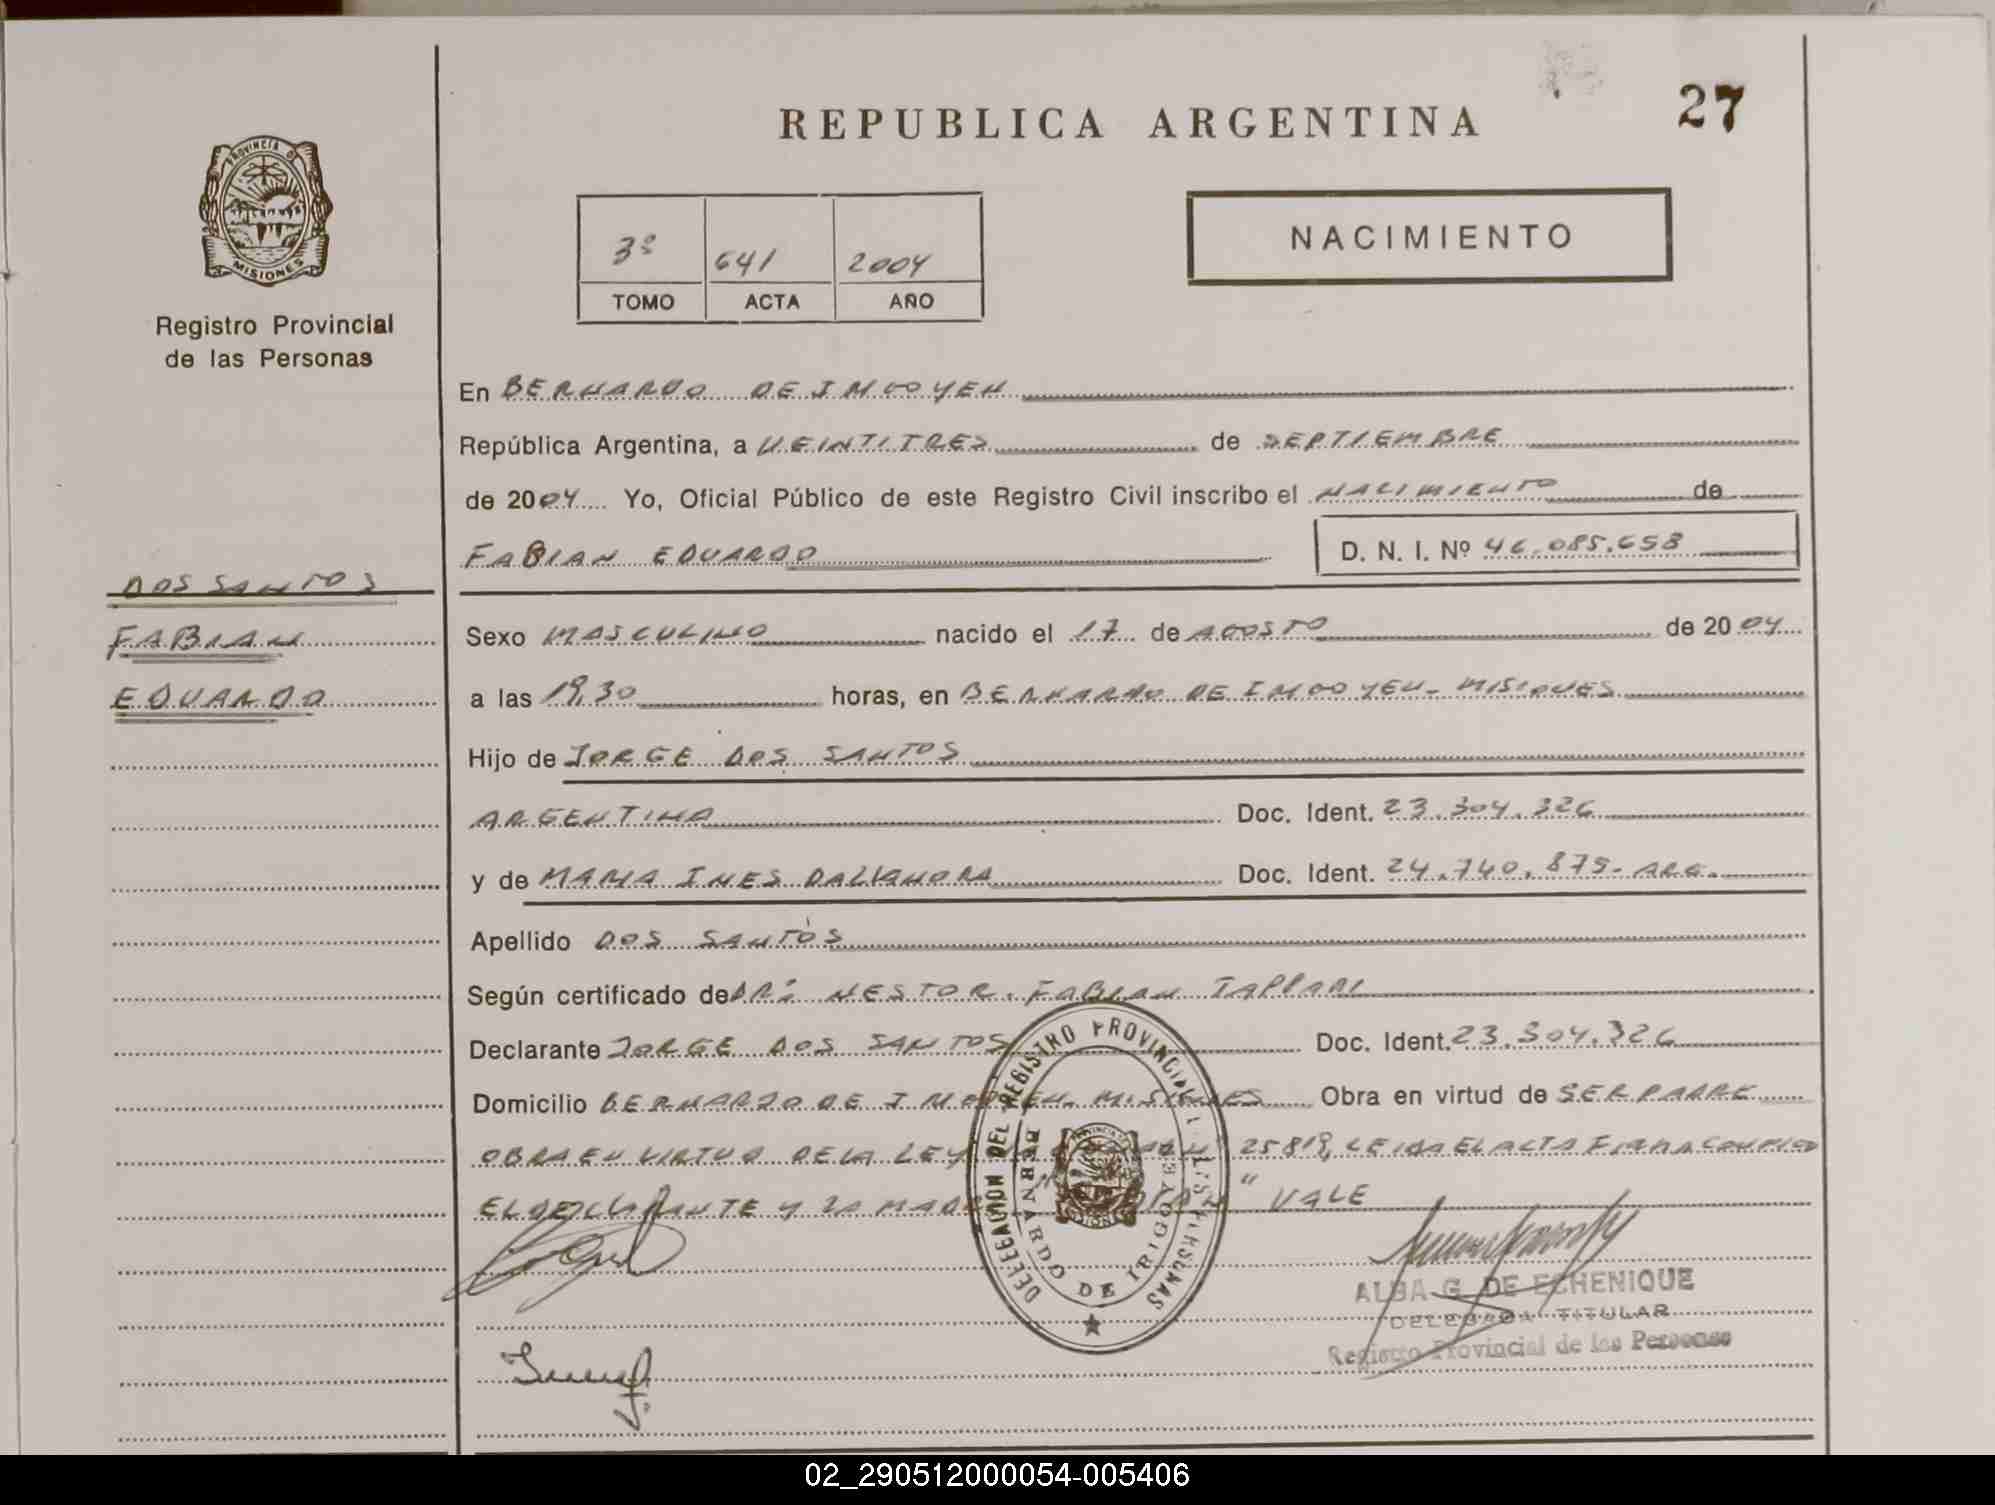 REPUBLICA ARGENTINA
27
PROVINCIA DE
MISIONES
Registro Provincial
de las Personas
3º 641 2004
TOMO ACTA AÑO
NACIMIENTO
En BERNARDO DE IRIGOYEN
República Argentina, a VEINTITRES de SEPTIEMBRE
de 2004 Yo, Oficial Público de este Registro Civil inscribo el NACIMIENTO de
FABIAN EDUARDO D. N. I. Nº 46.085.658
DOS SANTOS
FABIAN
EDUARDO
Sexo MASCULINO nacido el 17 de AGOSTO de 2004
a las 19,30 horas, en BERNARDO DE IRIGOYEN- MISIONES
Hijo de JORGE DOS SANTOS
ARGENTINA Doc. Ident. 23.304.326
y de MARIA INES Doc. Ident. 24.740.875- ARG.
Apellido DOS SANTOS
Según certificado de DR: NESTOR. FABIAN
Declarante JORGE DOS SANTOS Doc. Ident. 23.304.326
Domicilio BERNARDO DE IRIGOYEN- MISIONES Obra en virtud de SER PADRE
OBRA EN VIRTUD DE LA LEY 25819, LEIDA EL ACTA FIRMA CONMIGO
EL DECLARANTE Y LA MADRE " VALE
DELEGACION DEL REGISTRO PROVINCIAL DE LAS PERSONAS
BERNARDO DE IRIGOYEN
ALBA G. DE ECHENIQUE
DELEGADA TITULAR
Registro Provincial de las Personas
02_290512000054-005406